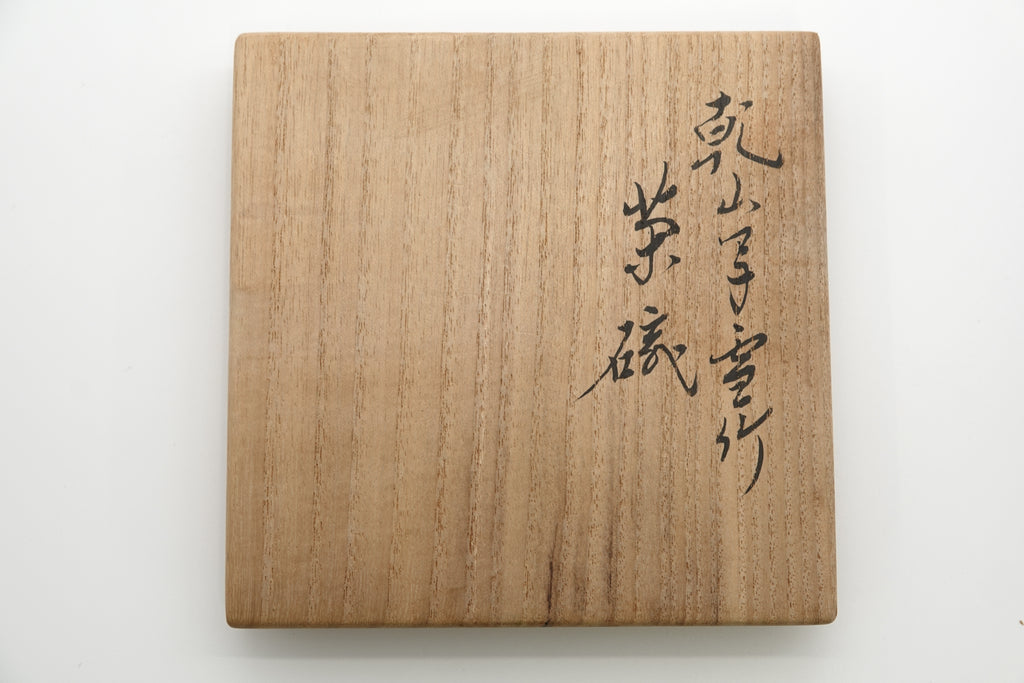 乾山写雪竹
茶碗